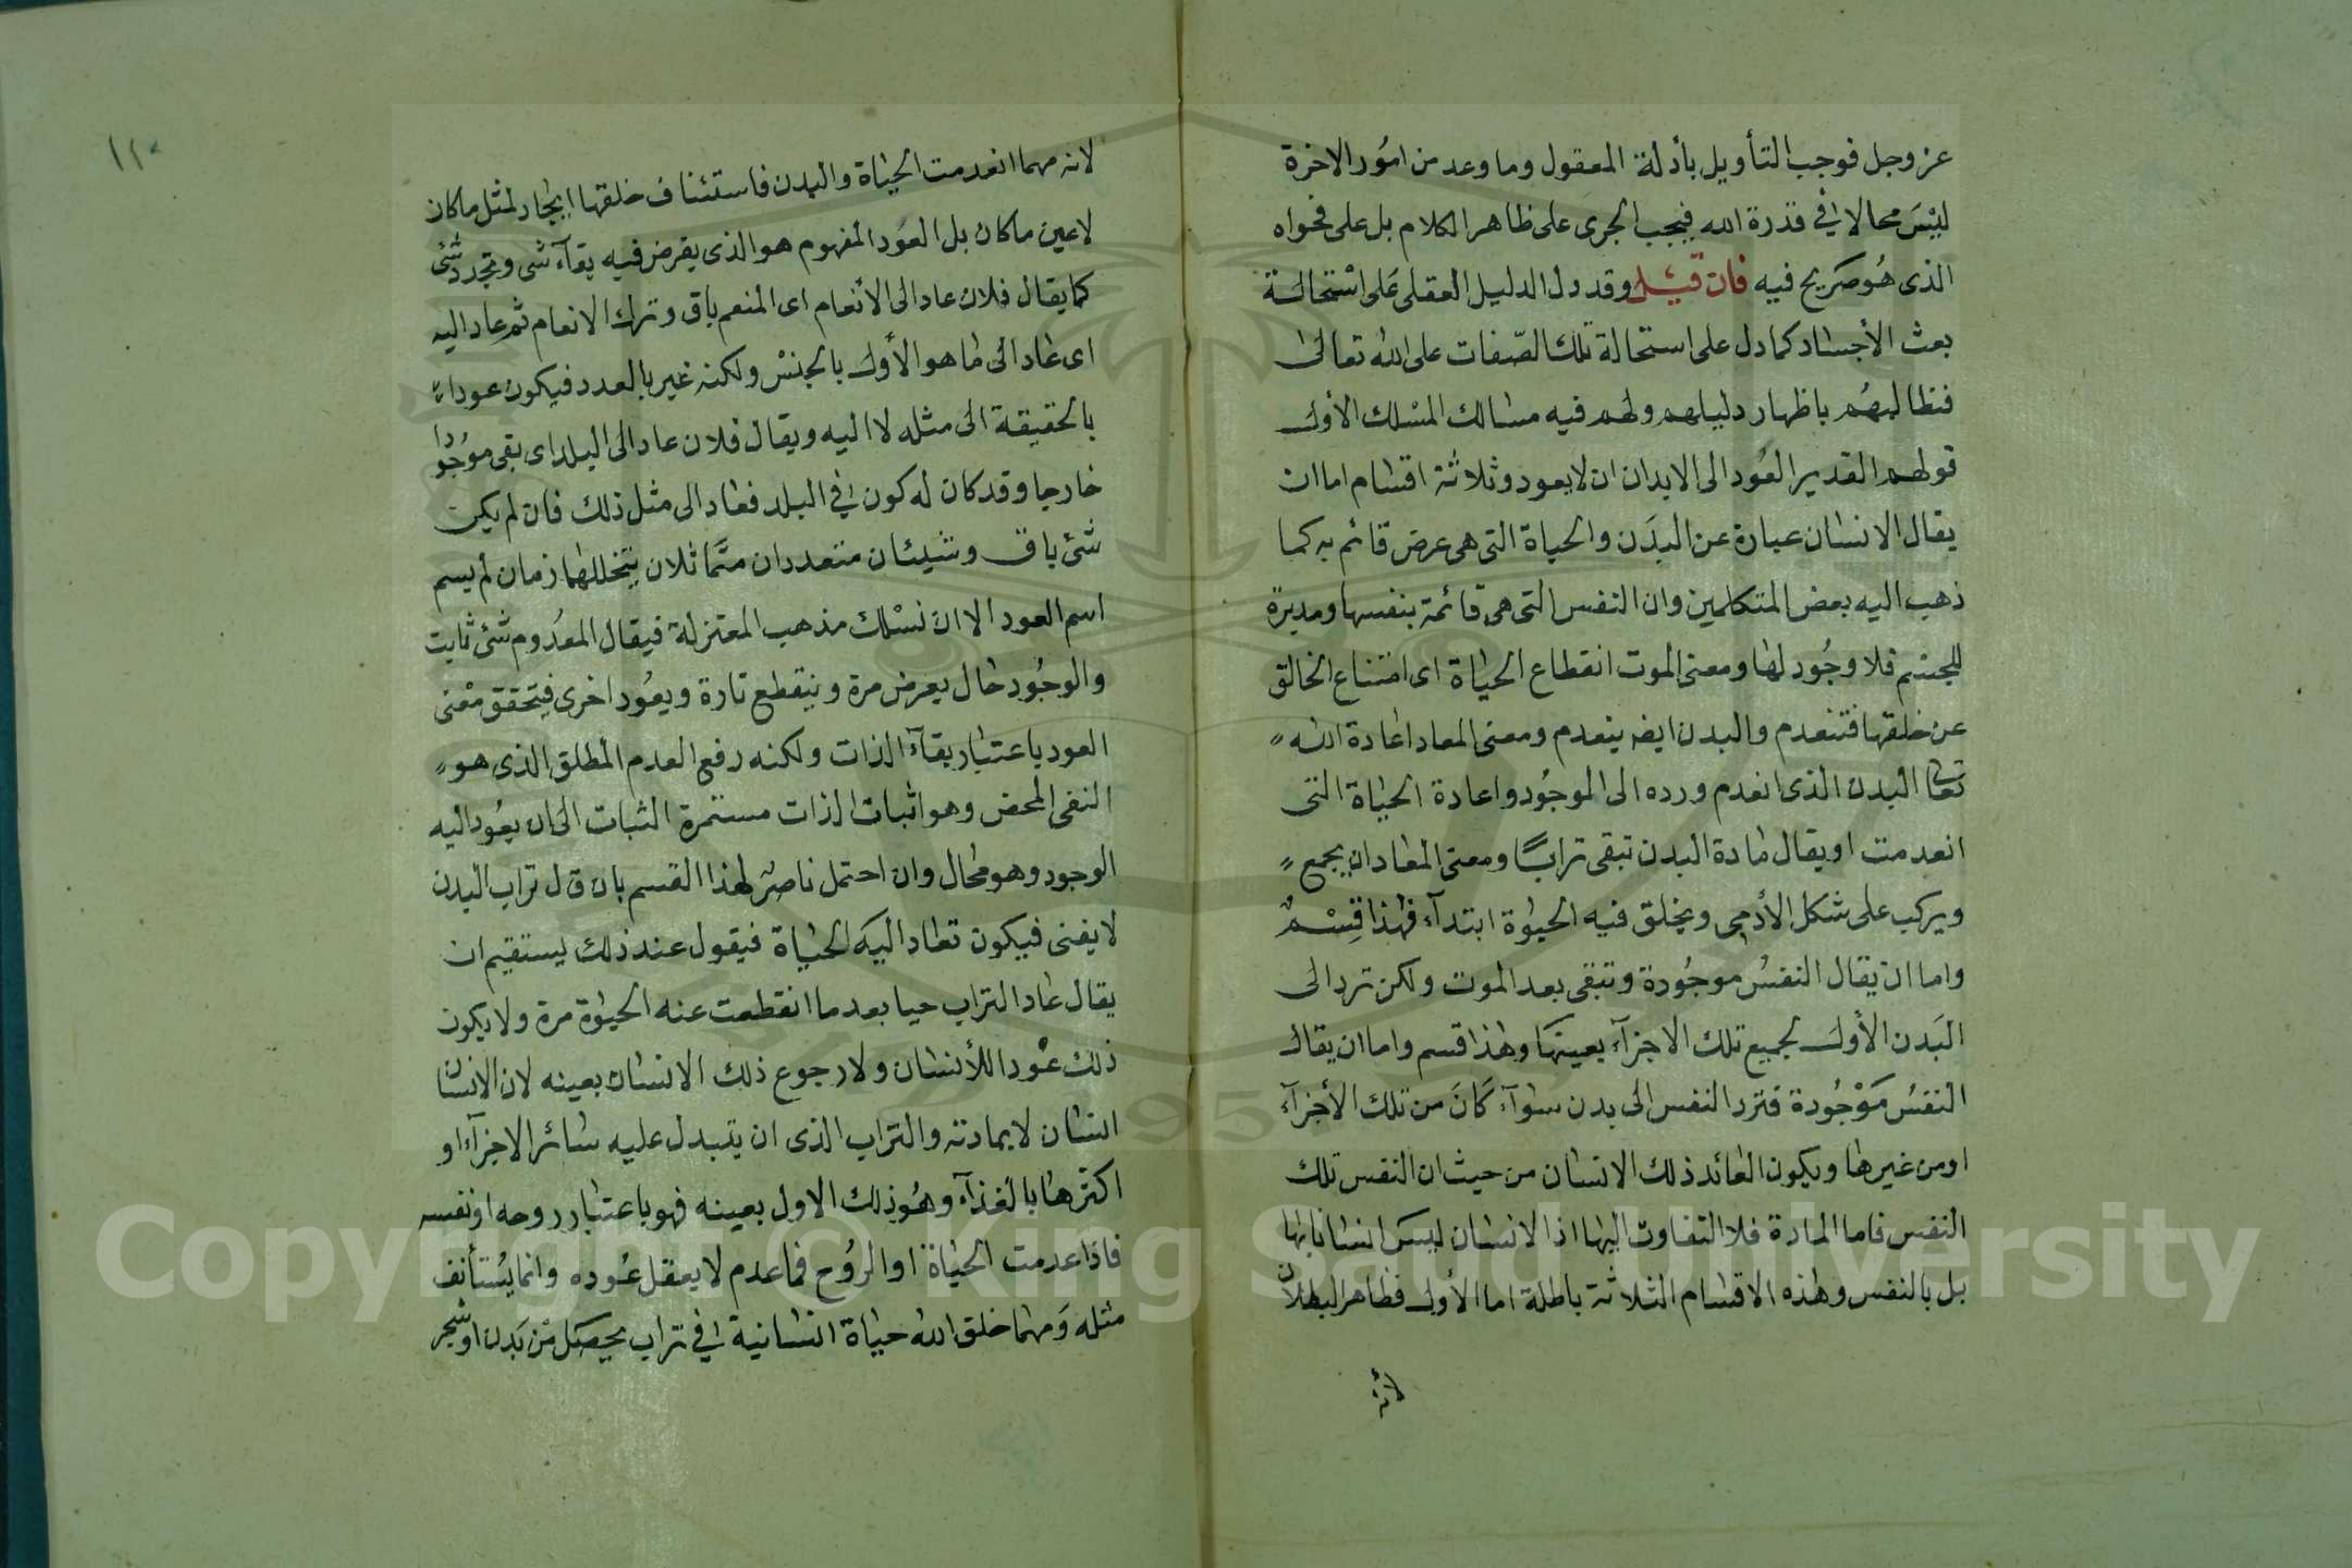 عز وجل فوجب التأويل بأدلة المعقول وما وعد من امُور الاخرة
ليْسَ محالا في قدرة الله فيجب الجرى على ظاهر الكلام بل على فحواه
الذى هُو صَريح فيه فان قيل وقد دل الدليل العقلى عَلى اسْتحالة
بعث الأجساد كما دل على استحالة تلك الصّفات على الله تعالى
فنطالبهُم باظهار دليلهم ولهم فيه مسالك المسْلك الأول
قولهم القدير العَود الى الابدان ان لا يعود وثلاثة اقسام اما ان
يقال الانسان عبارة عن البدَن والحياة التى هى عرض قائم به كما
ذهب اليه بعض المتكلمين وان النفس التى هى قائمة بنفسها ومدبرة
للجسم فلا وجُود لها ومعنى الموت انقطاع الحياة اى امتناع الخالق
عن خلقها فتنعدم والبدن ايضه ينعدم ومعنى المعاد اعادة الله
تعا البدن الذى انعدم ورده الى الموجُود واعادة الحياة التى
انعدمت او يقال مادة البدن تبقى ترابًا ومعنى المعاد ان يجمع
ويركب على شكل الأدمى ويخلق فيه الحيوة ابتدآء فهذا قِسْمٌ
واما ان يقال النفسُ موجُودة وتبقى بعد الموت ولكن ترد الى
البَدن الأول لجميع تلك الاجزآء بعينها وهذا قسم واما ان يقال
النفسُ مَوْجُودة فترد النفس الى بدن سوآء كَانَ من تلك الأجزآء
او من غيرها ويكون العائد ذلك الانسان من حيث ان النفس تلك
النفس فاما المادة فلا التفاوت اليها اذ الانسان ليسَ انسانا بها
بل بالنفس وهذه الاقسام الثلاثة باطلة اما الأول فظاهر البطلان
لأنه
١٢٠
لانه مهما انعدمت الحياة والبدن فاستئناف خلقها ايجاد لمثل ماكان
لا عين ماكان بل العَود المفهوم هو الذى يفرض فيه بقآء شى وتجدد شئ
كما يقال فلان عاد الى الأنعام اى المنعم باق وترك الانعام ثم عاد اليه
اى عاد الى ما هو الأول بالجنسْ ولكنه غير بالعدد فيكون عودا
بالحقيقة الى مثله لا اليه ويقال فلان عاد الى البلد اى بقى موُجودا
خارجا وقد كان له كون في البلد فعاد الى مثل ذلك فان لم يكن
شئ باق وشيئان متعددان متماثلان يتخللهما زمان لم يسم
اسم العود الا ان نسْلك مذهب المعتزلة فيقال المعدُوم شئ ثابت
والوجُود حال يعرض مرة وينقطع تارة ويعُود اخرى فيتحقق معْنى
العود باعتبار بقآء الذات ولكنه رفع العدم المطلق الذى هو
النفى المحض وهو اثبات الذات مستمرة الثبات الى ان يعُود اليه
الوجود وهو محال وان احتمل ناصر لهذا القسم بان قال تراب البدن
لا يفنى فيكون تعاد اليه الحياة فيقول عند ذلك يستقيم ان
يقال عاد التراب حيا بعد ما انقطعت عنه الحيوة مرة ولا يكون
ذلك عوْدا للأنسان ولا رجوع ذلك الانسان بعينه لان الانسان
انسان لا بمادته والتراب الذى ان يتبدل عليه سائر الاجزآء او
اكثرها بالغذآء وهُو ذلك الاول بعينه فهو باعتبار روحه او نفسه
فاذا عدمت الحياة او الروُح فما عدم لا يعقل عُوده وانما يُستأنف
مثله وَمهما خلق الله حياة انسانية في تراب يحصَل منْ بَدن او شجر
Copyright © King Saud University